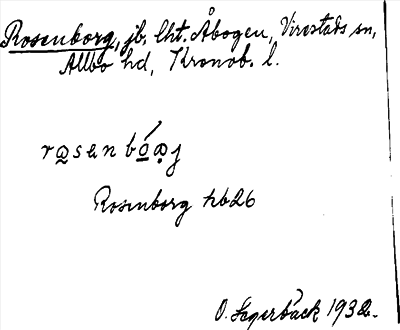 Rosenborg, jb. lht. Åbogen, Virestads sn,
Allbo hd, Kronob. l.
Rosenborg hb26
O. Segerbäck 1932.